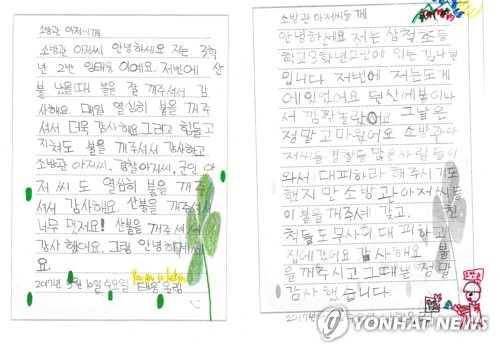 소방관 아저씨께
소방관 아저씨 안녕하세요 저는 3학
년 2반 임태웅이예요. 저번에 산
불 났을때 불을 잘 꺼주셔서 감
사해요. 매일 열심히 불을 꺼주
셔서 더욱 감사해요. 그리고 힘들고
지쳐도 불을 꺼주셔서 감사하고
소방관 아저씨, 경찰아저씨, 군인 아
저씨도 열심히 불을 꺼주
셔서 감사해요. 산불을 꺼주셔서
너무 멋져요! 산불을 꺼주셔서
감사했어요. 그럼 안녕히계세
요.
2017년 5월 10일 수요일 태웅 올림
소방관 아저씨들께
안녕하세요 저는 삼척초등
학교 3학년 2반에 있는 김나현
입니다 저번에 저는 도계
에 있었어요 뒷산에 불이 나
서 깜짝 놀랐어요 그날은
정말 고마웠어요 소방관아
저씨들 경찰들 많은 사람들이
와서 대피하라 해주시기도
했지만 소방관아저씨들
이 불을 꺼주셔 갖고. 친
척들도 무사히 대피하고
집에 갔어요 감사해요 불
을 꺼주시고 그때는 정말
감사했습니다.
2017년
YONHAP NEWS